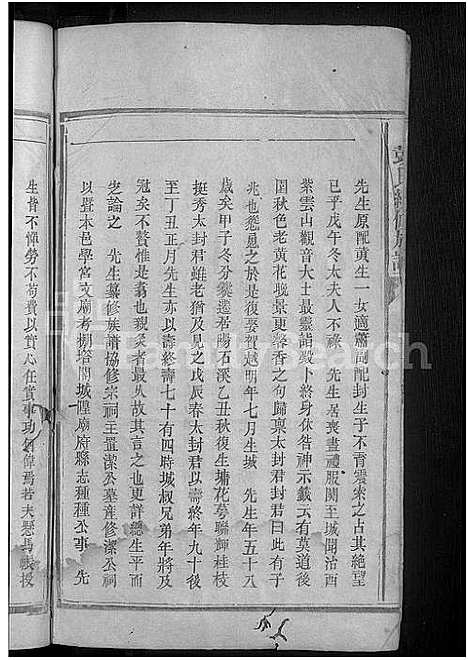 先生原配黃生一女適蕭同配封生子不育震索之占其絕望
已乎戊午冬太夫人不祿　先生居喪盡禮服闋至城聞治西
紫雲山觀音大士最靈詣殿卜終身休咎神示籤云有莫道後
園秋色老黃花晚景更馨香之句歸稟太封君封君曰此有子
兆也慫恿之於是復娶賀越明年七月生城　先生年五十八
歲矣甲子冬分爨遷居陽石溪乙丑秋復生墉花萼聯輝桂枝
挺秀太封君雖老猶及見之戊辰春太封君以壽終年九十後
至丁丑正月先生亦以壽終壽七十有四時城叔兄弟年將及
冠矣不贅惟是翥也親炙者最久故其言之也更詳總生平而
論之　先生纂修族譜協修宗祠王置潔公墓産修潔公祠
以曁本邑學宮文廟考棚塔閣城隍廟府縣志種種公事　先
生皆不憚勞不苟費以實心任實事功何偉焉若夫懸馬設授